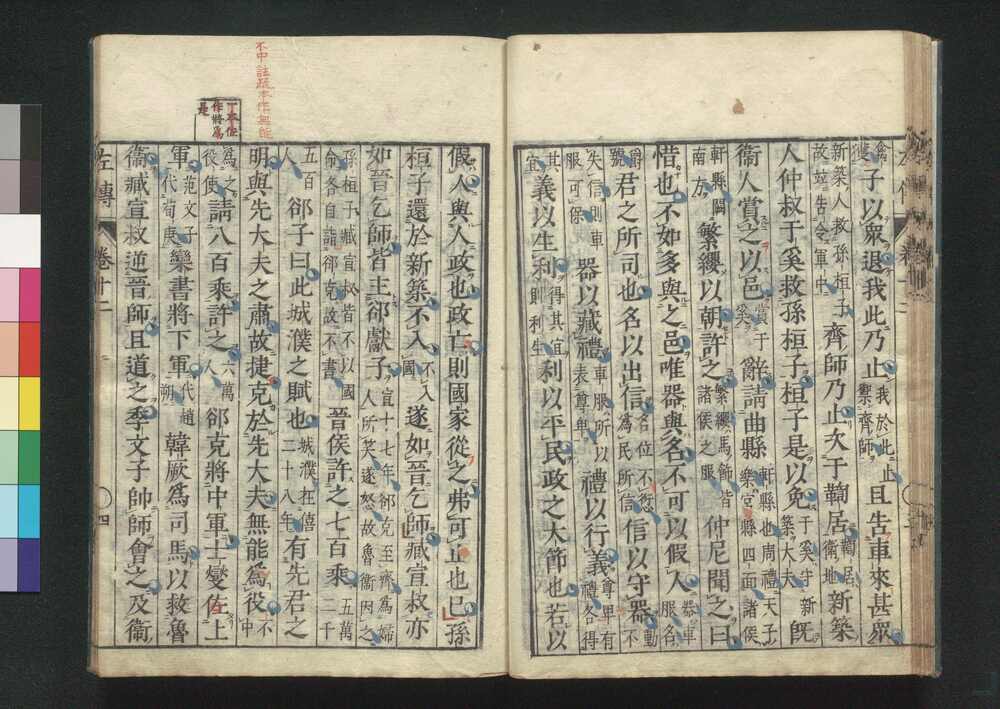 禽獲子以衆退我此乃止我於此止禦齊師且告車來甚衆
新築人救孫桓子故竝告令軍中齊師乃止次于鞫居鞫居衛地新築
人仲叔于奚救孫桓子桓子是以免于奚守新築大夫既
衛人賞之以邑賞于奚辭請曲縣軒縣也周禮天子樂宮縣四面諸侯
軒縣闕南方繁纓以朝許之繁纓馬飾皆諸侯之服仲尼聞之曰
惜也不如多與之邑唯器與名不可以假人器車服名
爵號君之所司也名以出信名位不愆爲民所信信以守器動不
失信則車服可保器以藏禮車服所以表尊卑禮以行義尊卑有禮各得
其宜義以生利得其宜則利生利以平民政之大節也若以
假人與人政也政亡則國家從之弗可止也已孫
桓子還於新築不入不入國遂如晉乞師臧宣叔亦
如晉乞師皆主郤獻子宣十七年郤克至齊爲婦人所笑遂怒故魯衛因之
孫桓子臧宣叔皆不以國命各自詣郤克故不書晉侯許之七百乘五萬二千
五百人郤子曰此城濮之賦也城濮在僖二十八年有先君之
明與先大夫之肅故捷克於先大夫無能爲役不中
爲之役使請八百乘許之六萬人郤克將中軍士燮佐上
軍范文子代荀庚欒書將下軍代趙朔韓厥爲司馬以救魯
衛臧宣叔逆晉師且道之季文子帥師會之及衛
不中註疏本作無能
一本佐作將爲是
左傳 卷十二 四